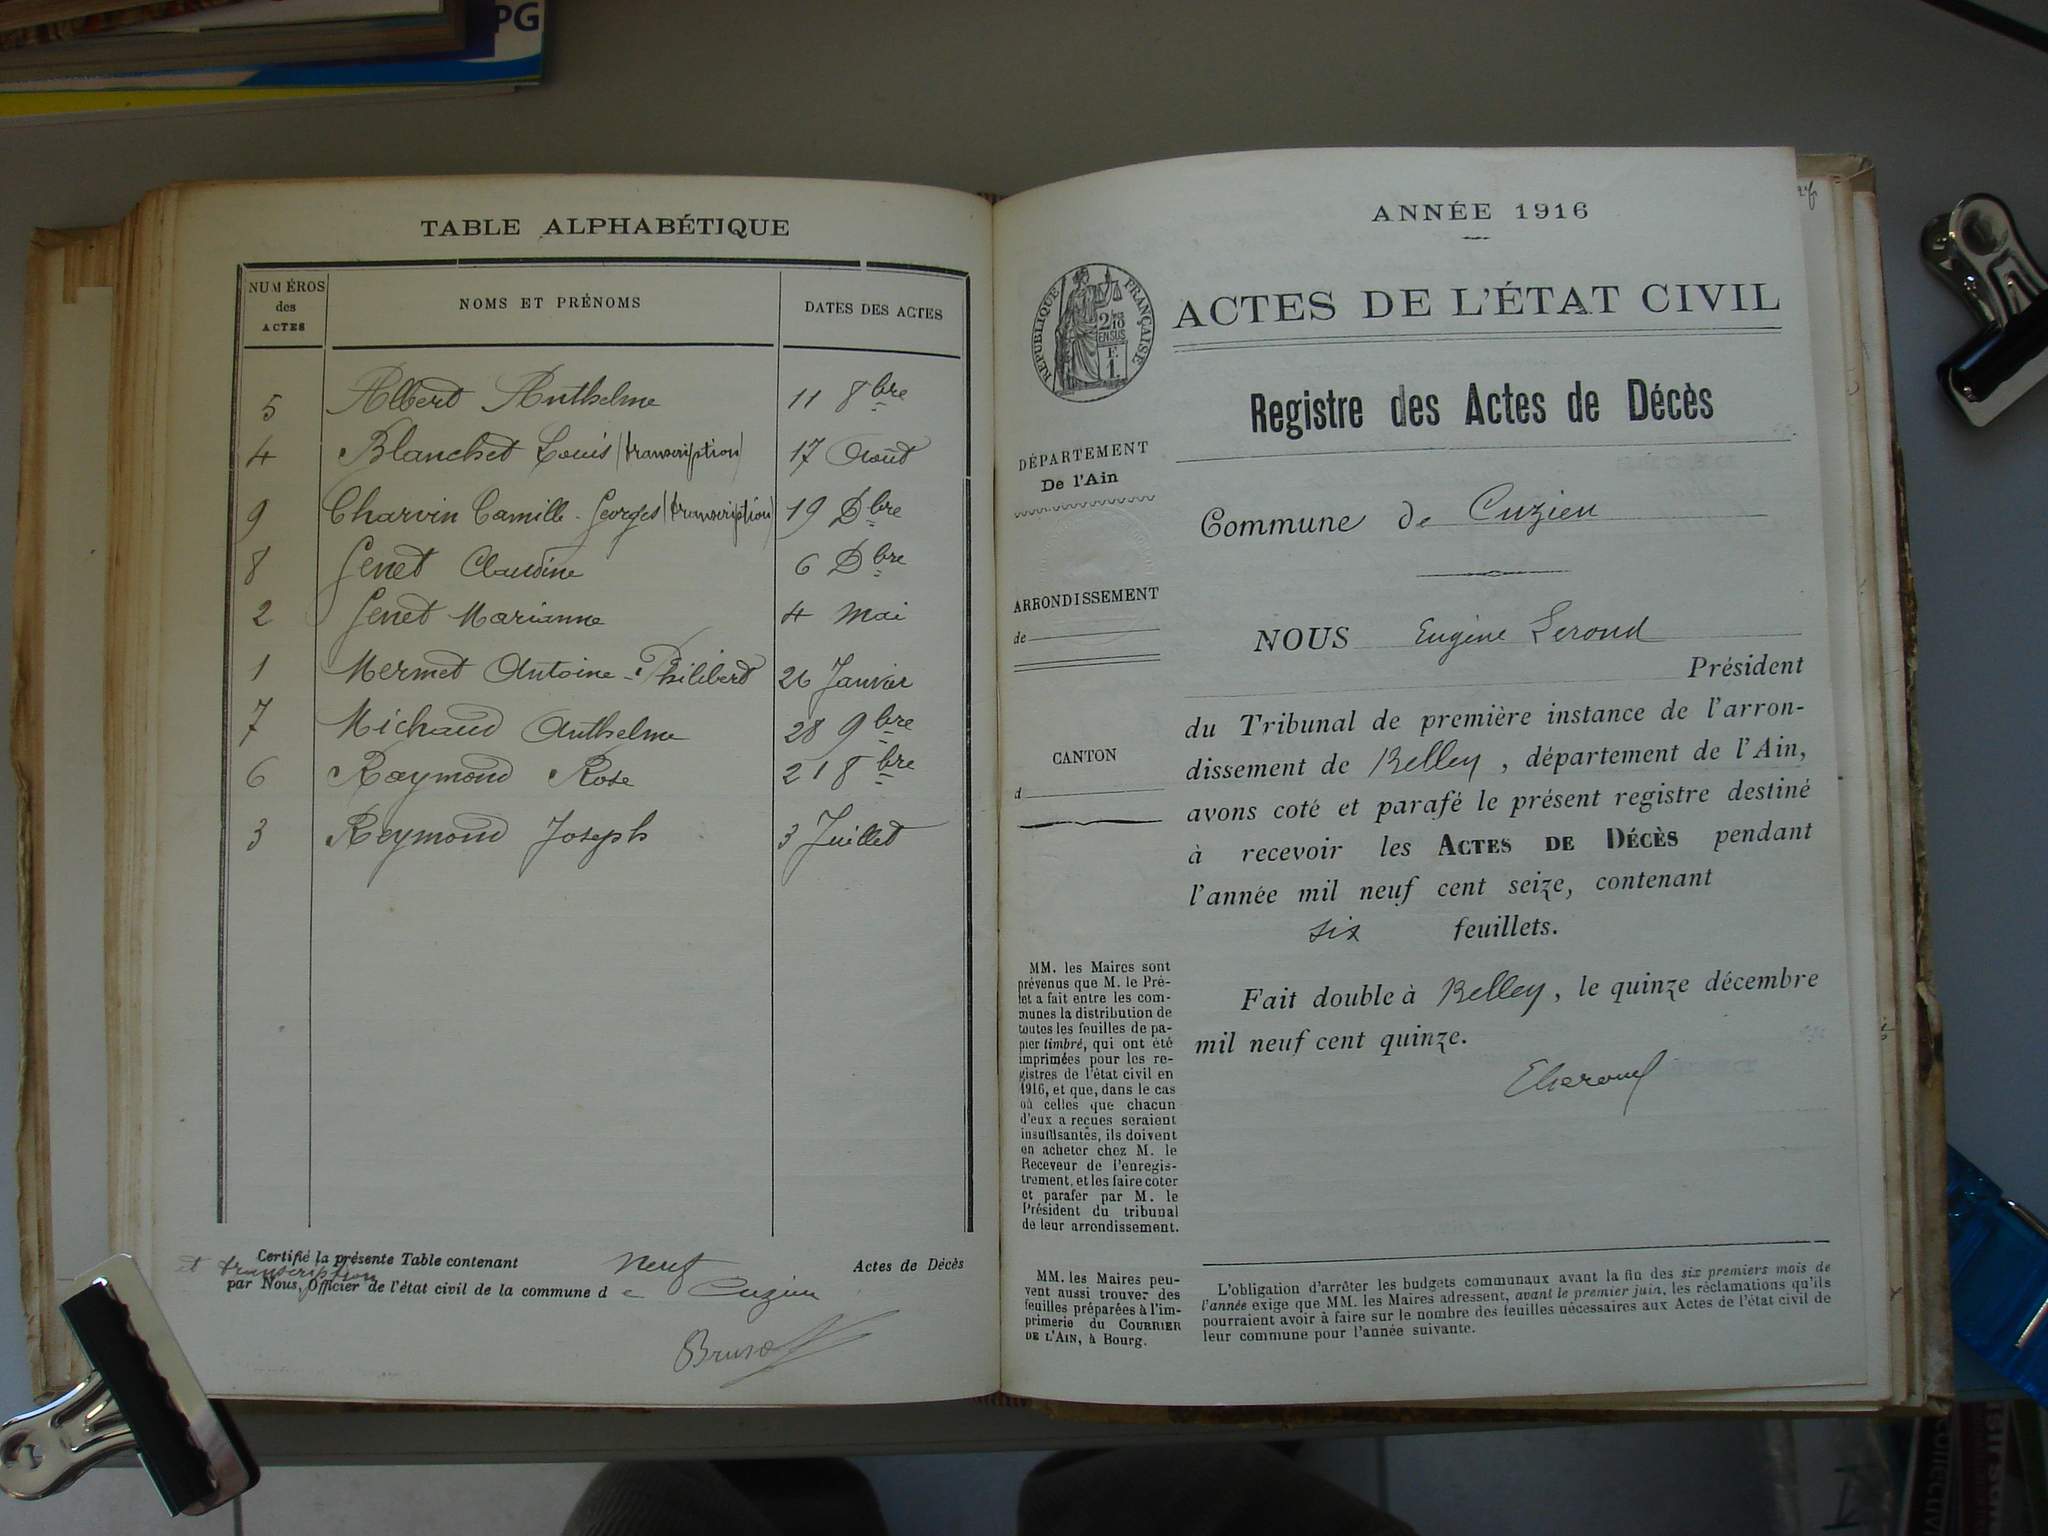 PG
TABLE ALPHABÉTIQUE
NUMÉROS des ACTES NOMS ET PRÉNOMS DATES DES ACTES
5 Albert Anthelme 11 8bre
4 Blanchet Louis (transcription) 17 Août
9 Charvin Camille-Georges (transcription) 19 Dbre
8 Genet Claudine 6 Dbre
2 Genet Marianne 4 Mai
1 Mermet Antoine-Philibert 26 Janvier
7 Michaud Anthelme 28 9bre
6 Raymond Rose 21 8bre
3 Reymond Joseph 3 Juillet
Certifié la présente Table contenant neuf Actes de Décès
et transcription
par Nous, Officier de l'état civil de la commune de Cuzieu
ANNÉE 1916
RÉPUBLIQUE FRANÇAISE
2/10
EN SUS
F.
1.
ACTES DE L'ÉTAT CIVIL
Registre des Actes de Décès
DÉPARTEMENT
De l'Ain
Commune de Cuzieu
ARRONDISSEMENT
de
NOUS Eugène Leroud
Président
du Tribunal de première instance de l'arron-
dissement de Belley, département de l'Ain,
avons coté et parafé le présent registre destiné
à recevoir les ACTES DE DÉCÈS pendant
l'année mil neuf cent seize, contenant
six feuillets.
CANTON
d
Fait double à Belley, le quinze décembre
mil neuf cent quinze.
MM. les Maires sont
prévenus que M. le Pré-
fet a fait entre les com-
munes la distribution de
toutes les feuilles de pa-
pier timbré, qui ont été
imprimées pour les re-
gistres de l'état civil en
1916, et que, dans le cas
où celles que chacun
d'eux a reçues seraient
insuffisantes, ils doivent
en acheter chez M. le
Receveur de l'enregis-
trement, et les faire coter
et parafer par M. le
Président du tribunal
de leur arrondissement.
MM. les Maires peu-
vent aussi trouver des
feuilles préparées à l'im-
primerie du COURRIER
DE L'AIN, à Bourg.
L'obligation d'arrêter les budgets communaux avant la fin des six premiers mois de
l'année exige que MM. les Maires adressent, avant le premier juin, les réclamations qu'ils
pourraient avoir à faire sur le nombre des feuilles nécessaires aux Actes de l'état civil de
leur commune pour l'année suivante.